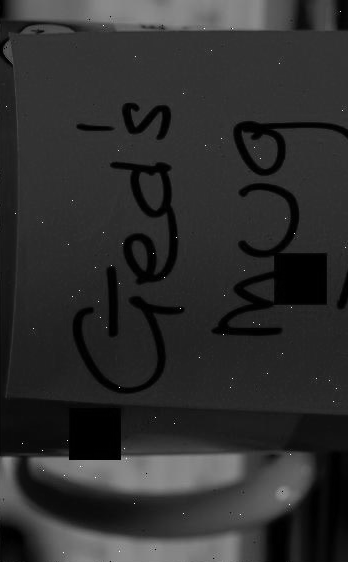 Ged's
mug